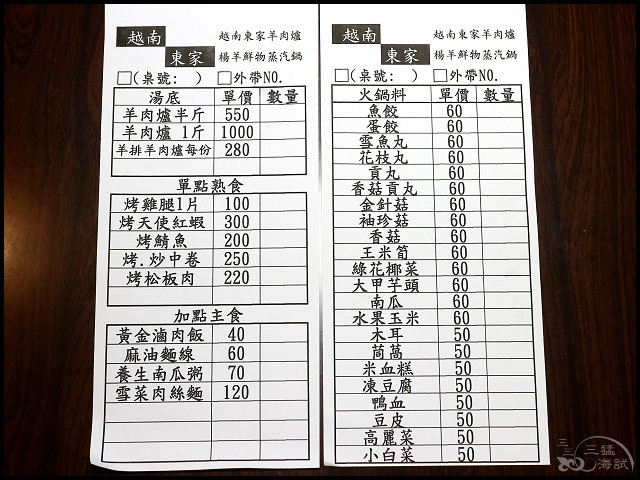 越南 東家
越南東家羊肉爐
楊羊鮮物蒸汽鍋
□(桌號: ) □外帶NO.
湯底 單價 數量
羊肉爐半斤 550
羊肉爐 1斤 1000
羊排羊肉爐每份 280
單點熟食
烤雞腿1片 100
烤天使紅蝦 300
烤鯖魚 200
烤.炒中卷 250
烤松板肉 220
加點主食
黃金滷肉飯 40
麻油麵線 60
養生南瓜粥 70
雪菜肉絲麵 120
越南 東家
越南東家羊肉爐
楊羊鮮物蒸汽鍋
□(桌號: ) □外帶NO.
火鍋料 單價 數量
魚餃 60
蛋餃 60
雪魚丸 60
花枝丸 60
貢丸 60
香菇貢丸 60
金針菇 60
袖珍菇 60
香菇 60
玉米筍 60
綠花椰菜 60
大甲芋頭 60
南瓜 60
水果玉米 60
木耳 50
茼萵 50
米血糕 50
凍豆腐 50
鴨血 50
豆皮 50
高麗菜 50
小白菜 50
三猛
海試